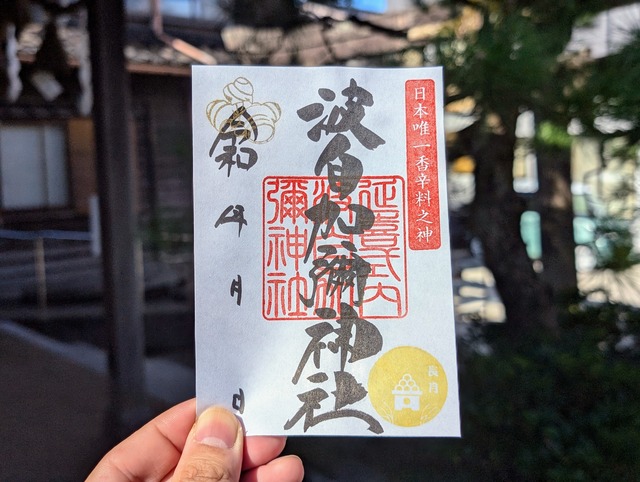 日本唯一香辛料之神
波自加彌神社
延喜式内
波自加
彌神社
長月
令和
年
月
日